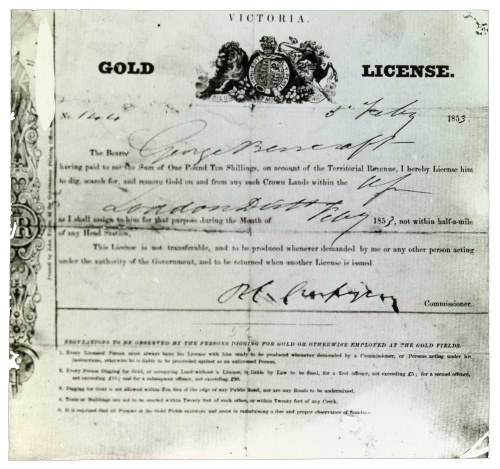 VICTORIA.
GOLD LICENSE.
No. 144 3 Feby 1853
The Bearer George Bencraft
having paid to me the Sum of One Pound Ten Shillings, on account of the Territorial Revenue, I hereby License him
to dig, search for, and remove Gold on and from any such Crown Lands within the
Loddon District
as I shall assign to him for that purpose during the Month of Feby 1853, not within half-a-mile
of any Head Station.
This License is not transferable, and to be produced whenever demanded by me or any other person acting
under the authority of the Government, and to be returned when another License is issued.
Commissioner.
REGULATIONS TO BE OBSERVED BY THE PERSONS DIGGING FOR GOLD OR OTHERWISE EMPLOYED AT THE GOLD FIELDS.
1. Every Licensed Person must always have his License with him ready to be produced whenever demanded by a Commissioner, or Persons acting under his
instructions, otherwise he is liable to be proceeded against as an unlicensed Person.
2. Every Person Digging for Gold, or occupying Land without a License, is liable by Law to be fined, for a first offence, not exceeding £5; for a second offence,
not exceeding £15; and for a subsequent offence, not exceeding £30.
3. Digging for Gold is not allowed within Ten feet of the edge of any Public Road, nor are any Roads to be undermined.
4. Tents or Buildings are not to be erected within Twenty feet of each other, or within Twenty feet of any Creek.
5. It is enjoined that all Persons at the Gold Fields maintain and assist in maintaining a due and proper observance of Sundays.